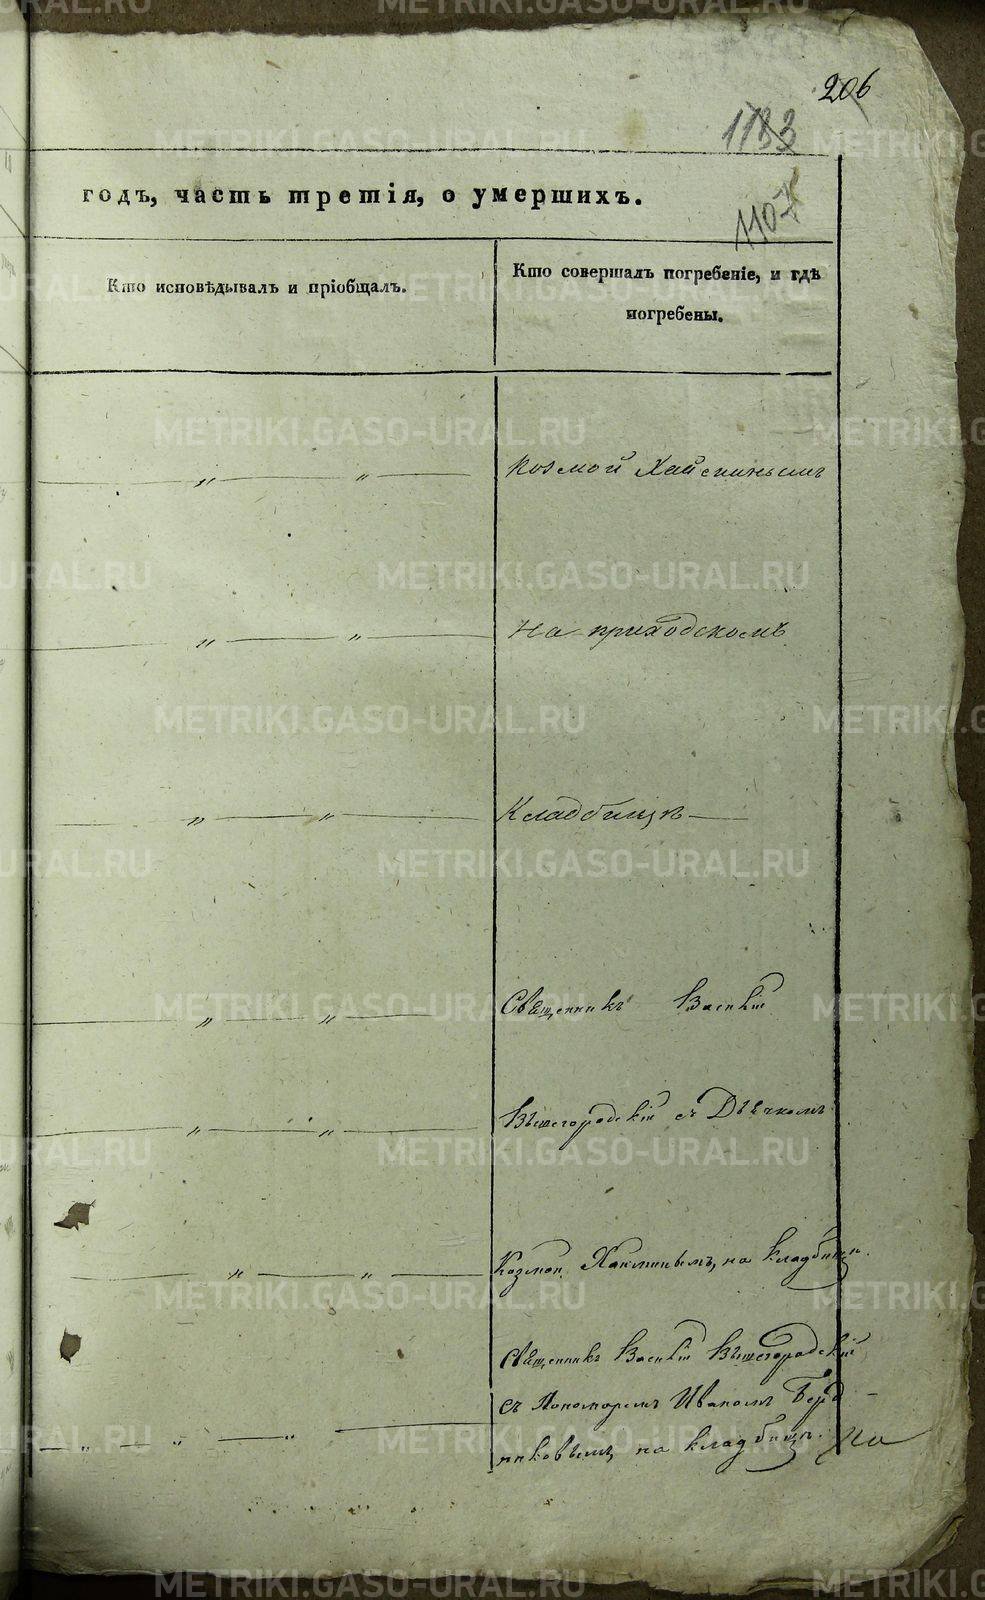 206
1183
1107
годъ, часть третія, о умершихъ.
Кто исповѣдывалъ и пріобщалъ.
Кто совершалъ погребеніе, и гдѣ
погребены.
Козмой
На приходскомъ
Кладбищѣ
Священникъ Василій
Вышегородскій съ Дьячкомъ
Козмой на кладбищѣ.
Священникъ Василій Вышегородскій
съ Пономаремъ Иваномъ Берд-
никовымъ, на кладбищѣ. На
METRIKI.GASO-URAL.RU